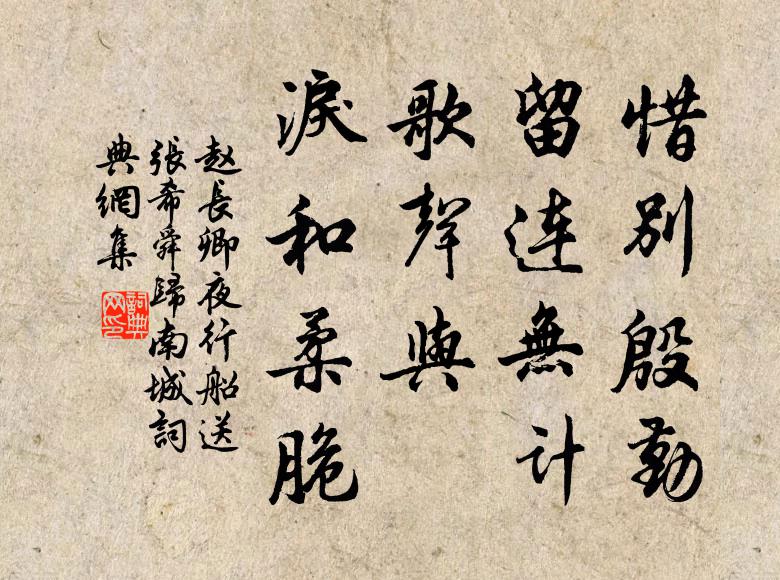 惜別殷勤
留連無計
歌聲與
淚和柔脆
赵長卿夜行船送
張希舜歸南城詞
典網集
詞典
网印